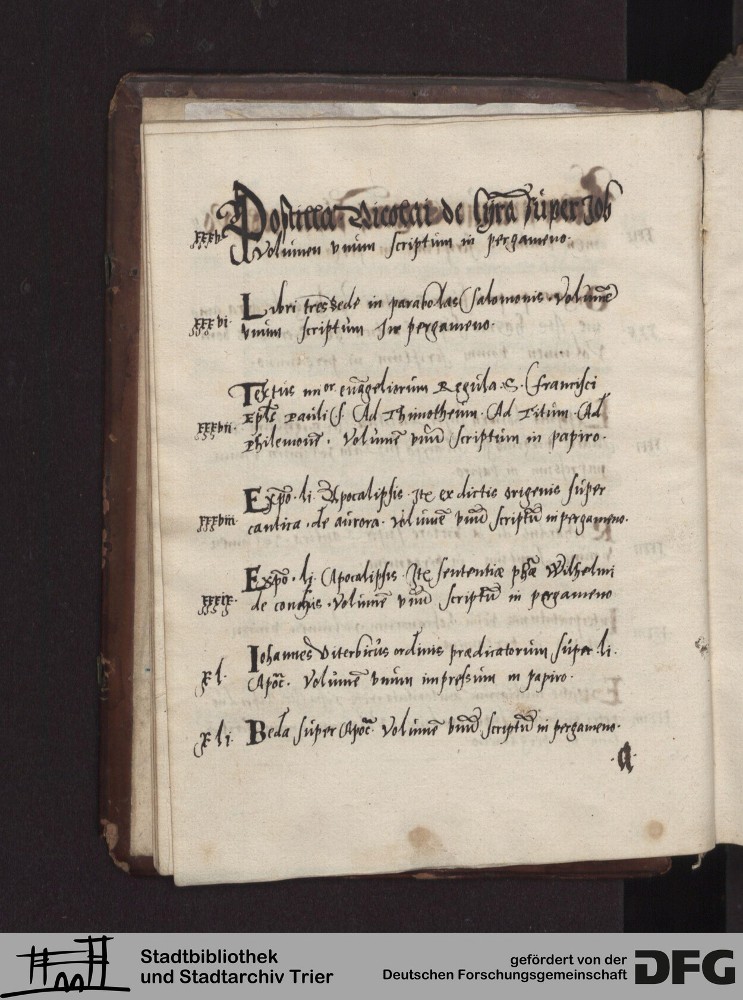 Postilla Nicolai de lyra super Job
xxxv. Volumen vnum scriptum in pergameno.
Libri tres bede in parabolas Salomonis. Volumē
xxxvi. vnum scriptum in pergameno.
Textus iiiior euāgeliorum Regula. S. francisci
xxxvii. Eplē Pauli s. Ad Thimotheum. Ad Titum. Ad
Philemonē. Volumē vnū scriptum in papiro.
Expō. li. Apocalipsis. Itē ex dictis origenis super
xxxviii. cantica. de aurora. volumē vnū scriptū in pergameno.
Expō. li. Apocalipsis. Itē sententiæ phīa Wilhelmi
xxxix. de conchis. Volumē vnū scriptū in pergameno
Iohannes Viterbicus ordinis prædicatorum super li.
xl. Apoc̄. Volumē vnum impressum in papiro.
xli. Beda super Apoc̄. Volumē vnū scriptū in pergameno.
.a.
Stadtbibliothek
und Stadtarchiv Trier
gefördert von der
Deutschen Forschungsgemeinschaft
DFG